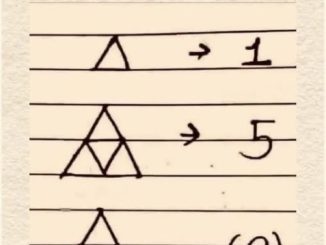 → 1
→ 5